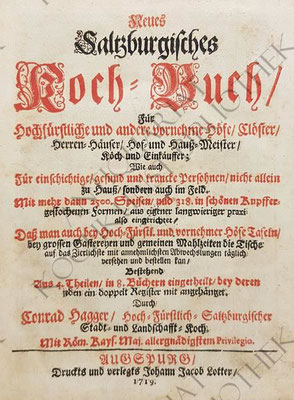 Neues
Saltzburgisches
Koch-Buch/
Für
Hochfürstliche und andere vornehme Höfe/ Clöster/
Herren-Häuser/ Hof- und Hauß-Meister/
Köch und Einkäuffer;
Wie auch
Für einschichtige/ gesund und krancke Persohnen/ nicht allein
zu Hauß/ sondern auch im Feld.
Mit mehr dann 2500. Speisen/ und 318. in schönen Kupffer
gestochenen Formen/ aus eigener langwieriger praxi
also eingerichtet/
Daß man auch bey Hoch-Fürstl. und vornehmer Höfe Tafeln/
bey grossen Gastereyen und gemeinen Mahlzeiten die Tische
auf das Zierlichste mit annehmlichsten Abwechslungen täglich
versehen und bestellen kan/
Bestehend
Aus 4. Theilen/ in 8. Büchern eingetheilt/ bey deren
jeden ein doppelt Register mit angehänget.
Durch
Conrad Hagger/ Hoch-Fürstlich-Saltzburgischer
Stadt- und Landschafft-Koch.
Mit Röm. Kays. Maj. allergnädigstem Privilegio.
AUGSPURG/
Druckts und verlegts Johann Jacob Lotter/
1719.